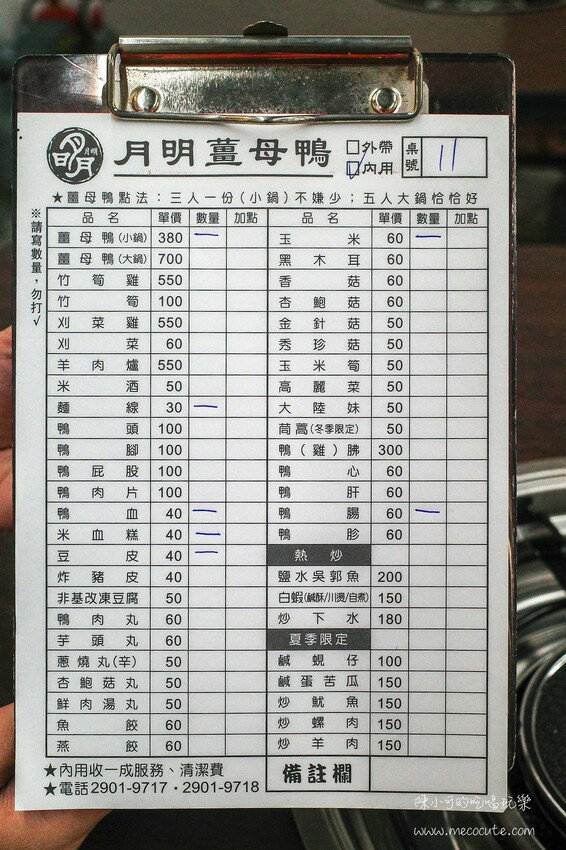 明月 月明
月明薑母鴨
外帶
內用
桌號 11
★薑母鴨點法：三人一份(小鍋)不嫌少；五人大鍋恰恰好
※請寫數量，勿打√
品名 單價 數量 加點 品名 單價 數量 加點
薑母鴨(小鍋) 380 一 玉米 60 一
薑母鴨(大鍋) 700 黑木耳 60
竹筍雞 550 香菇 60
竹筍 100 杏鮑菇 60
刈菜雞 550 金針菇 50
刈菜 60 秀珍菇 50
羊肉爐 550 玉米筍 50
米酒 50 高麗菜 50
麵線 30 一 大陸妹 50
鴨頭 100 茼蒿(冬季限定) 50
鴨腳 100 鴨(雞)胇 300
鴨屁股 100 鴨心 60
鴨肉片 100 鴨肝 60
鴨血 40 一 鴨腸 60 一
米血糕 40 一 鴨胗 60
豆皮 40 二 熱炒
炸豬皮 40 鹽水吳郭魚 200
非基改凍豆腐 50 白蝦(鹹酥/川燙/自煮) 150
鴨肉丸 60 炒下水 180
芋頭丸 60 夏季限定
蔥燒丸(辛) 50 鹹蜆仔 100
杏鮑菇丸 50 鹹蛋苦瓜 150
鮮肉湯丸 50 炒魷魚 150
魚餃 60 炒螺肉 150
燕餃 60 炒羊肉 150
★內用收一成服務、清潔費 備註欄
★電話2901-9717・2901-9718
陳小可的吃喝玩樂
www.mecocute.com